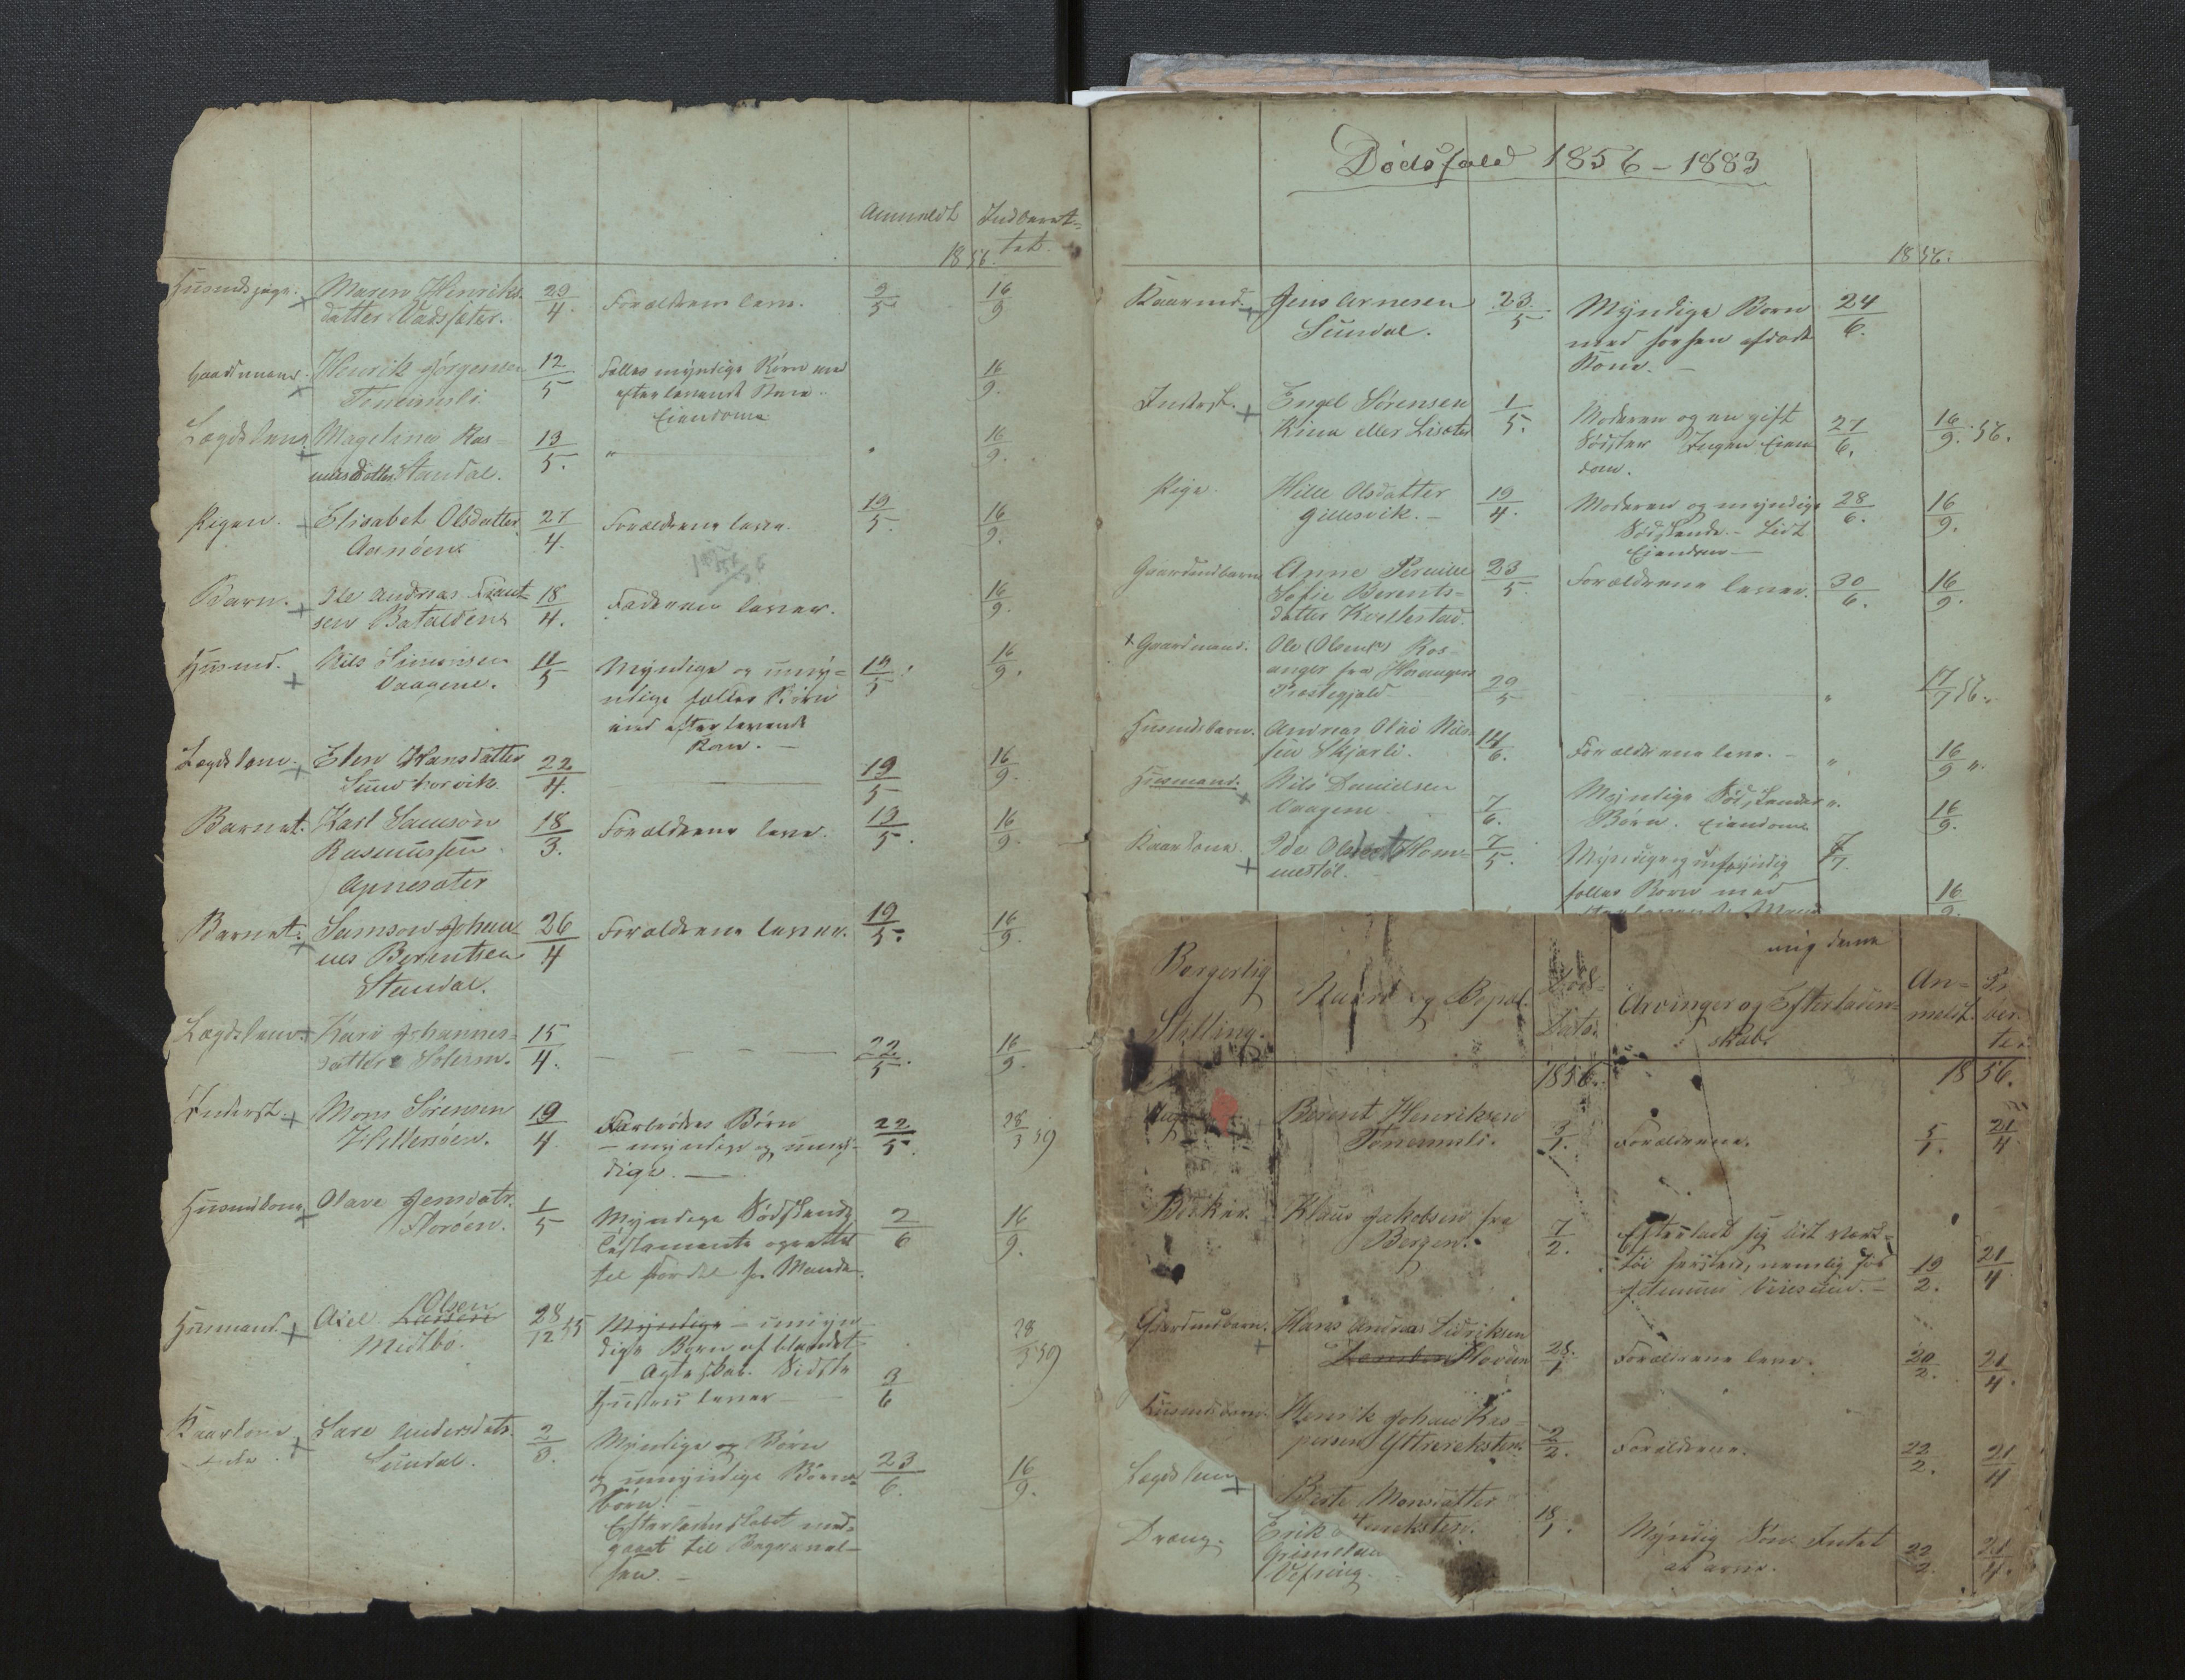 Anmeldt Indberet-
tet.
1856.
Maren Henriks-
datter Vadsæter.
29/4. Forældrene leve. 9/5 16/9
Gaardmand. Henrik Jørgensen 12/5
Fælles myndige Børn med
efterlevende Kone.
Eiendom
16/9.
Lægdslem Magelina Ras-
musdatter Standal. 13/5. 16/9.
Pigen. Elisabet Olsdatter 27/4. Forældrene leve. 19/5. 16/9.
Barn. Ole Andreas
sen Batalden 18/4. Faderen lever. 16/9.
Husmd. Nils Simonsen
Vaagene. 11/5
Myndige og umyn-
dige fælles Børn
med efterlevende
Kone. 19/5 16/9.
Lægdslem. Elen Hansdatter 22/4. 19/5 16/9.
Barnet. Karl Samson
Rasmussen
Apnesæter
18/3. Forældrene leve. 19/5. 16/9.
Barnet. Samson Johan-
nes Berentsen
Standal.
26/4 Forældrene lever. 19/5. 16/9.
Lægdslem Kari Johannes-
datter Solem. 15/4. 22/5. 16/9.
Inderst. Mons Sørensen
19/4
Farbrødres Børn
– myndige og umyn-
dige. 22/5. 28/3 59
Husmdkone Olave Jensdatr.
Storøen. 1/5
Myndige Södskende
Testamente oprettet
til Fordel for Manden. 2/6 16/9.
Husmand. Axel Larsen Olsen
Midtbø. 28/12 55
Myndige – umyn-
dige Børn af blandet
Ægteskab. Sidste
Hustru lever 3/6 28/3 59
Kaarkone Sare Andersdatr.
Sundal. 2/3.
Myndige Børn
og umyndige Børne-
børn.
Efterladenskabet med-
gaaet til Begravel-
sen. 23/6. 16/9.
Dødsfald 1856–1883
1856.
Kaarmd. Jens Arnesen
Sundal. 23/5
Myndige Børn
med før ham afdøde
Kone. 24/6.
Inderst. Engel Sørensen
Rina eller Lisæter 1/5.
Moderen og en gift
Södster Ingen Eien-
dom. 27/6. 16/9. 56.
Pige. Hille Olsdatter
Gillesvik. 19/4.
Moderen og myndige
Södskende. – Lidt
Eiendom 28/6. 16/9.
Gaardmdbarn Anne Pernille
Sofie Berents-
datter Kvellestad. 23/5
Forældrene lever. 30/6. 16/9.
Gaardmand. Ole (Olsen?) Ros-
anger fra Horanger
Præstegjæld 29/5 17/9 56.
Husmdsbarn. Andreas Olai Nils-
sen Skjærli. 14/6. Forældrene leve. 16/9
Husmand. Nils Danielsen
Vaagene 7/6.
Myndige Södskendes
Børn. Eiendom 16/9.
Kaarkone. Ide
mestøl. 7/5.
Myndige og umyndige
fælles Børn med
16/9.
mig denne
Borgerlig
Stilling. Navn og Bopæl. Døds-
Dato. Arvinger og Efterladen-
skab. An-
meldt.
1856. 1856.
Berent Henriksen
3/1. Forældrene. 5/1. 21/4
Klaus Jakobsen fra
Bergen. 7/2.
Efterladt sig lidt Værk-
töi hersteds, nemlig hos
19/2. 21/4
Gaardmdbarn. Hans Andreas Didriksen
25/1 Forældrene leve. 20/2. 21/4.
Husmdsbarn. Henrik Johan Kas-
persen Ytrereksten. 2/2. Forældrene. 22/2. 21/4
Lægdslem Berte Monsdatter
18/1. Myndig Søn Intet
at arve. 22/2. 21/4.
Dreng. Erik
Vefring.